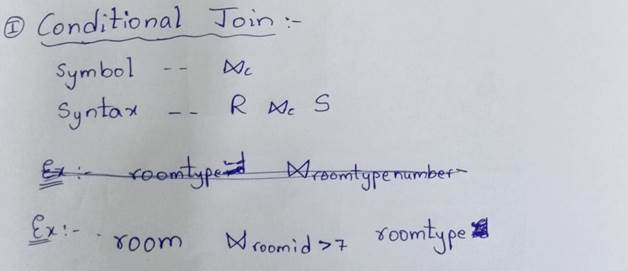 ① Conditional Join :-
Symbol -- ⋈c
Syntax -- R ⋈c S
Ex :- roomtype ⋈roomtypenumber
Ex :- room ⋈roomid>7 roomtype